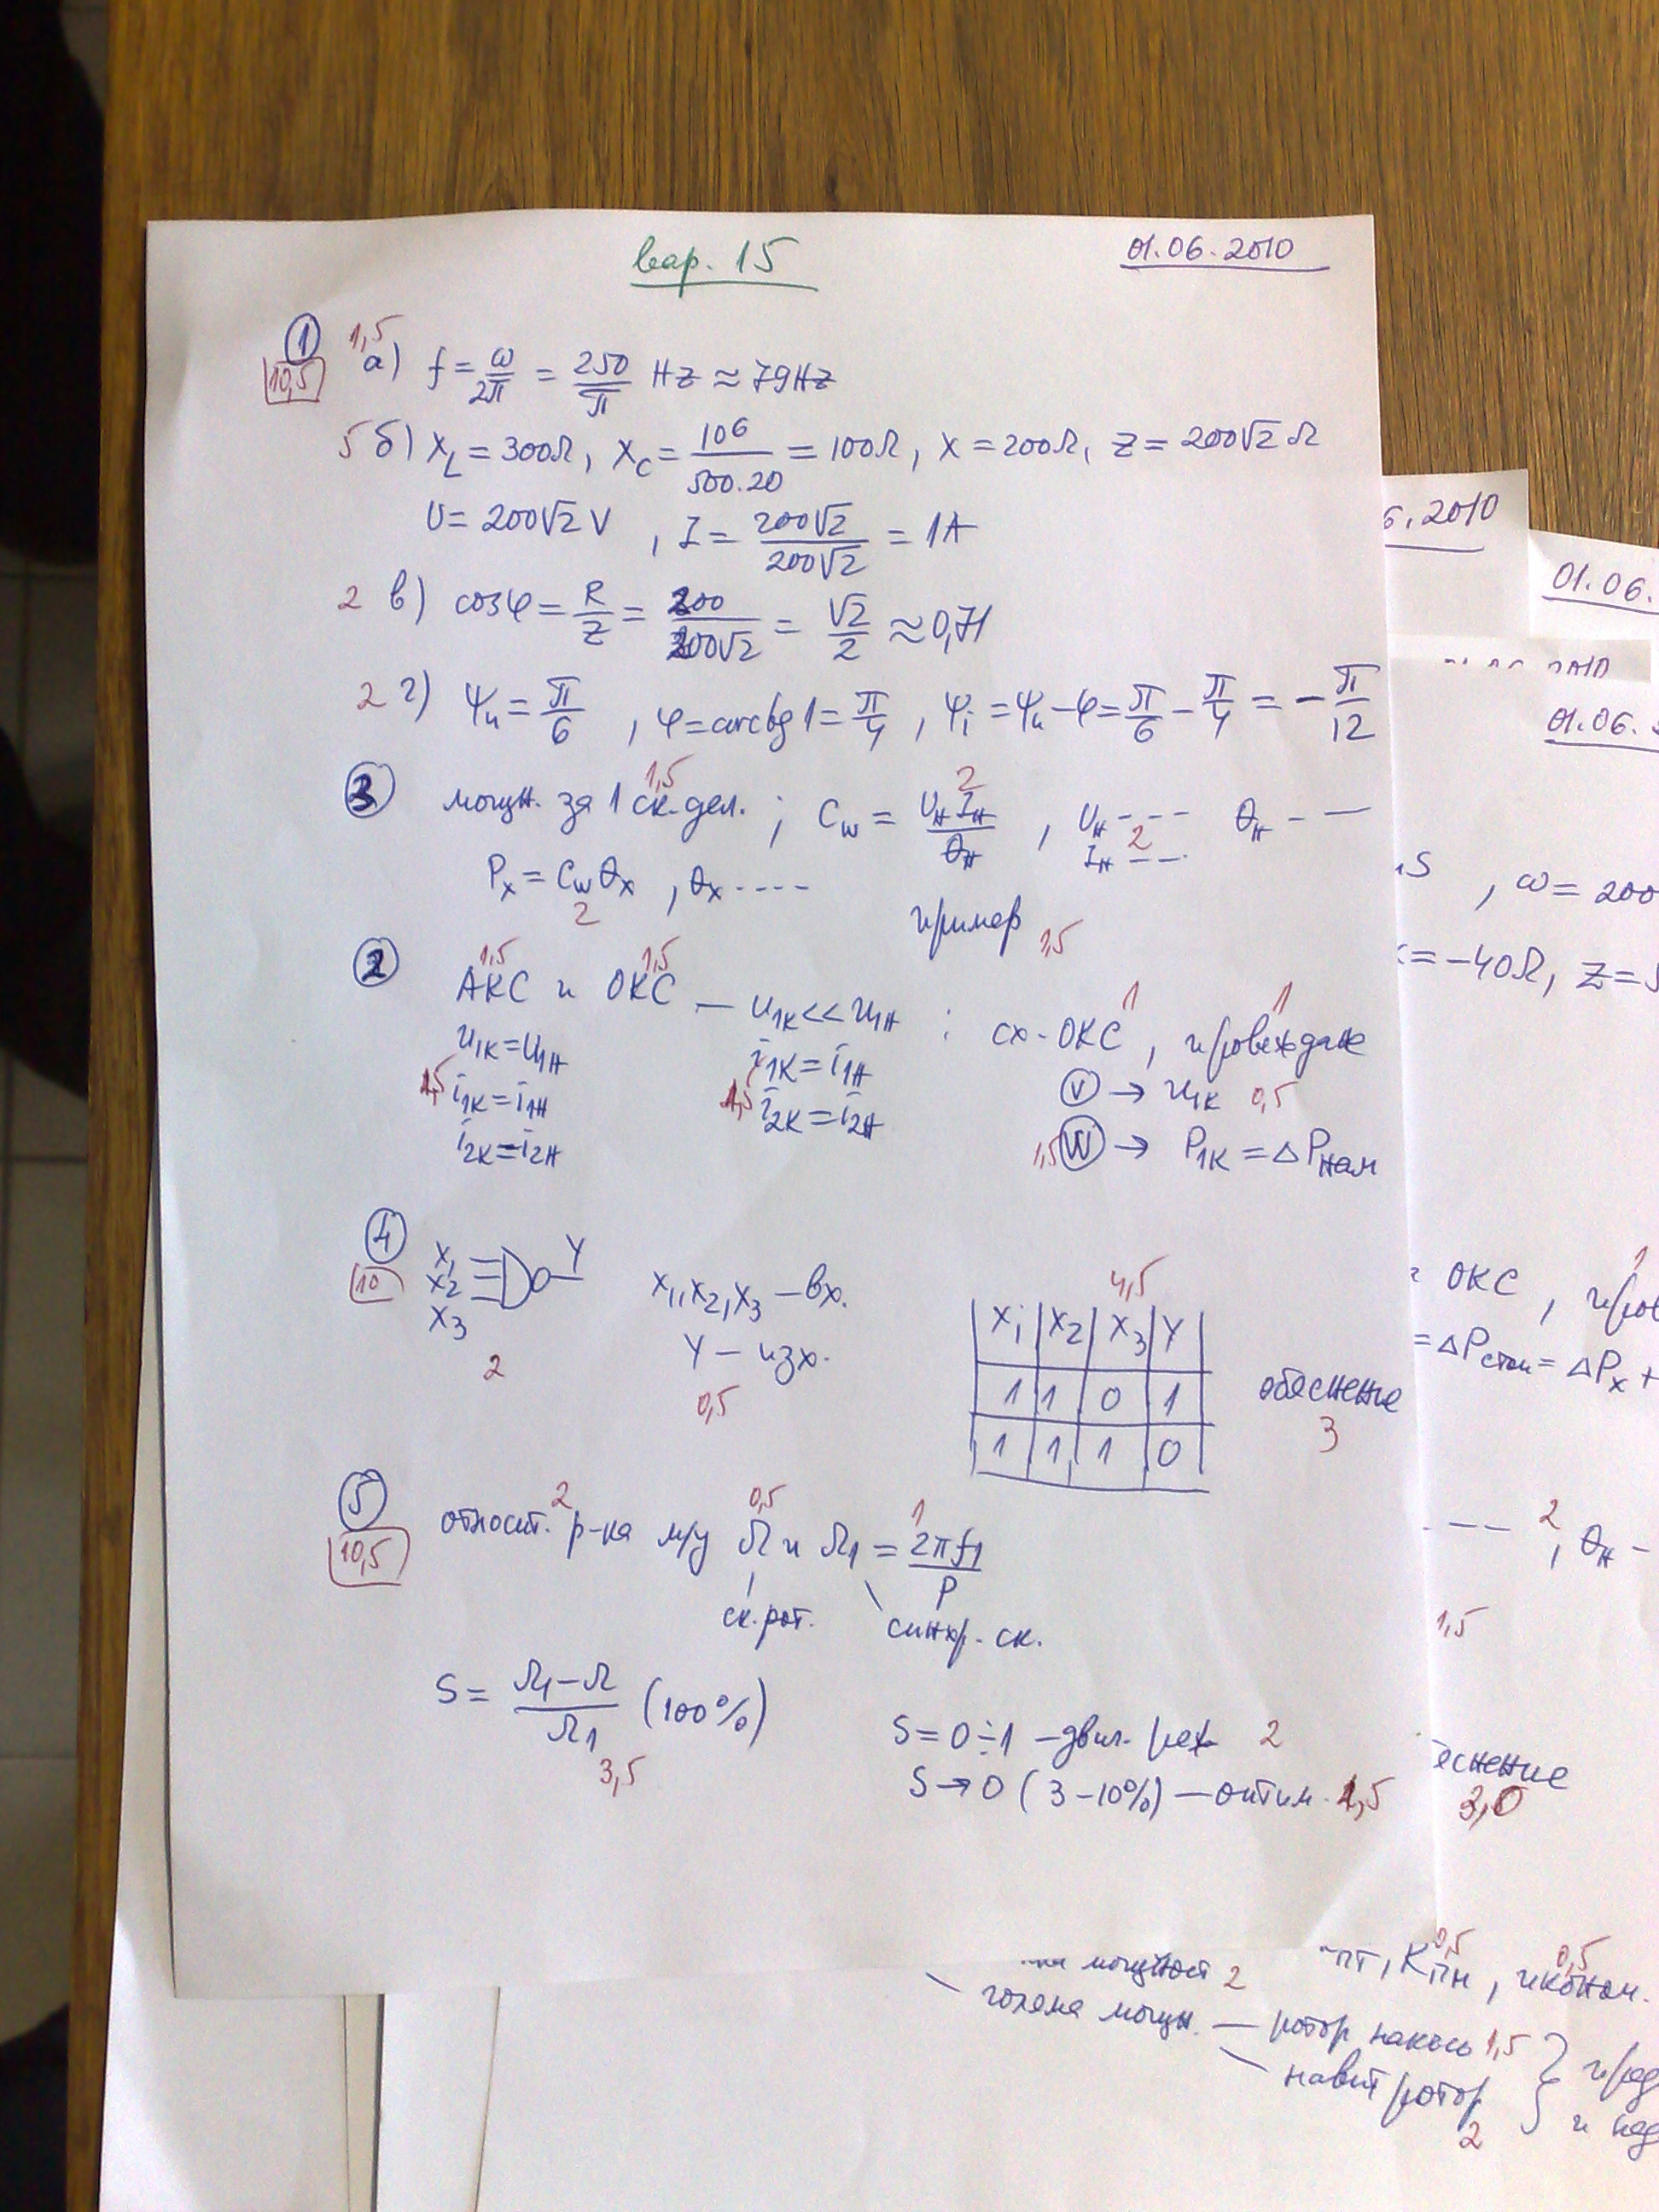 вар. 15
01.06.2010
1
10,5
1,5
а) f = ω/2π = 250/π Hz ≈ 79Hz
5 б) X_L = 300Ω, X_C = 10⁶/500.20 = 100Ω, X = 200Ω, Z = 200√2 Ω
U = 200√2 V , I = 200√2/200√2 = 1A
2 в) cosφ = R/Z = 200/200√2 = √2/2 ≈ 0,71
2 г) ψu = π/6 , φ = arctg 1 = π/4 , ψi = ψu - φ = π/6 - π/4 = - π/12
3 мощн. за 1 ск. дел. ; C_W = U_H I_H/θ_H , U_H --- θ_H - —
1,5 2
I_H --- 2
P_X = C_W θ_X , θ_X ----
2
пример 1,5
2
1,5 1,5
АКС и ОКС — u1К << u1Н : сх-ОКС , провеждане
1 1
u1К = u1Н
i1К = i1Н
i2К = i2Н
1,5
i1К = i1Н
i2К = i2Н
1,5
V → u1К 0,5
1,5 W → P1К = ΔPном
4
10
X1
X2
X3
Y
2
x1, x2, x3 — вх.
Y — изх.
0,5
4,5
X1 X2 X3 Y
1 1 0 1
1 1 1 0
обяснение
3
5
10,5
2 0,5 1
относит. р-ка м/у Ω и Ω1 = 2πf1/P
ск. рот.
синхр. ск.
S = Ω1 - Ω/Ω1 (100%)
3,5
S = 0÷1 — двиг. реж 2
S → 0 (3-10%) — оптим. 1,5
6.2010
01.06.
01.06.
, ω = 200
= -40Ω, Z =
ОКС ,
1
= ΔPстат = ΔPx +
2
, θ_H -
1,5
еснение
3,0
мощност 2
ПТ, КПН , иконом.
0,5 0,5
голяма мощн. — ротор накъсо 1,5
навит ротор
2